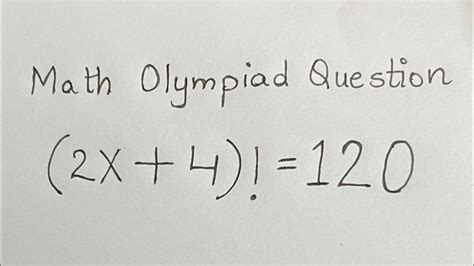 Math Olympiad Question
(2x+4)!=120